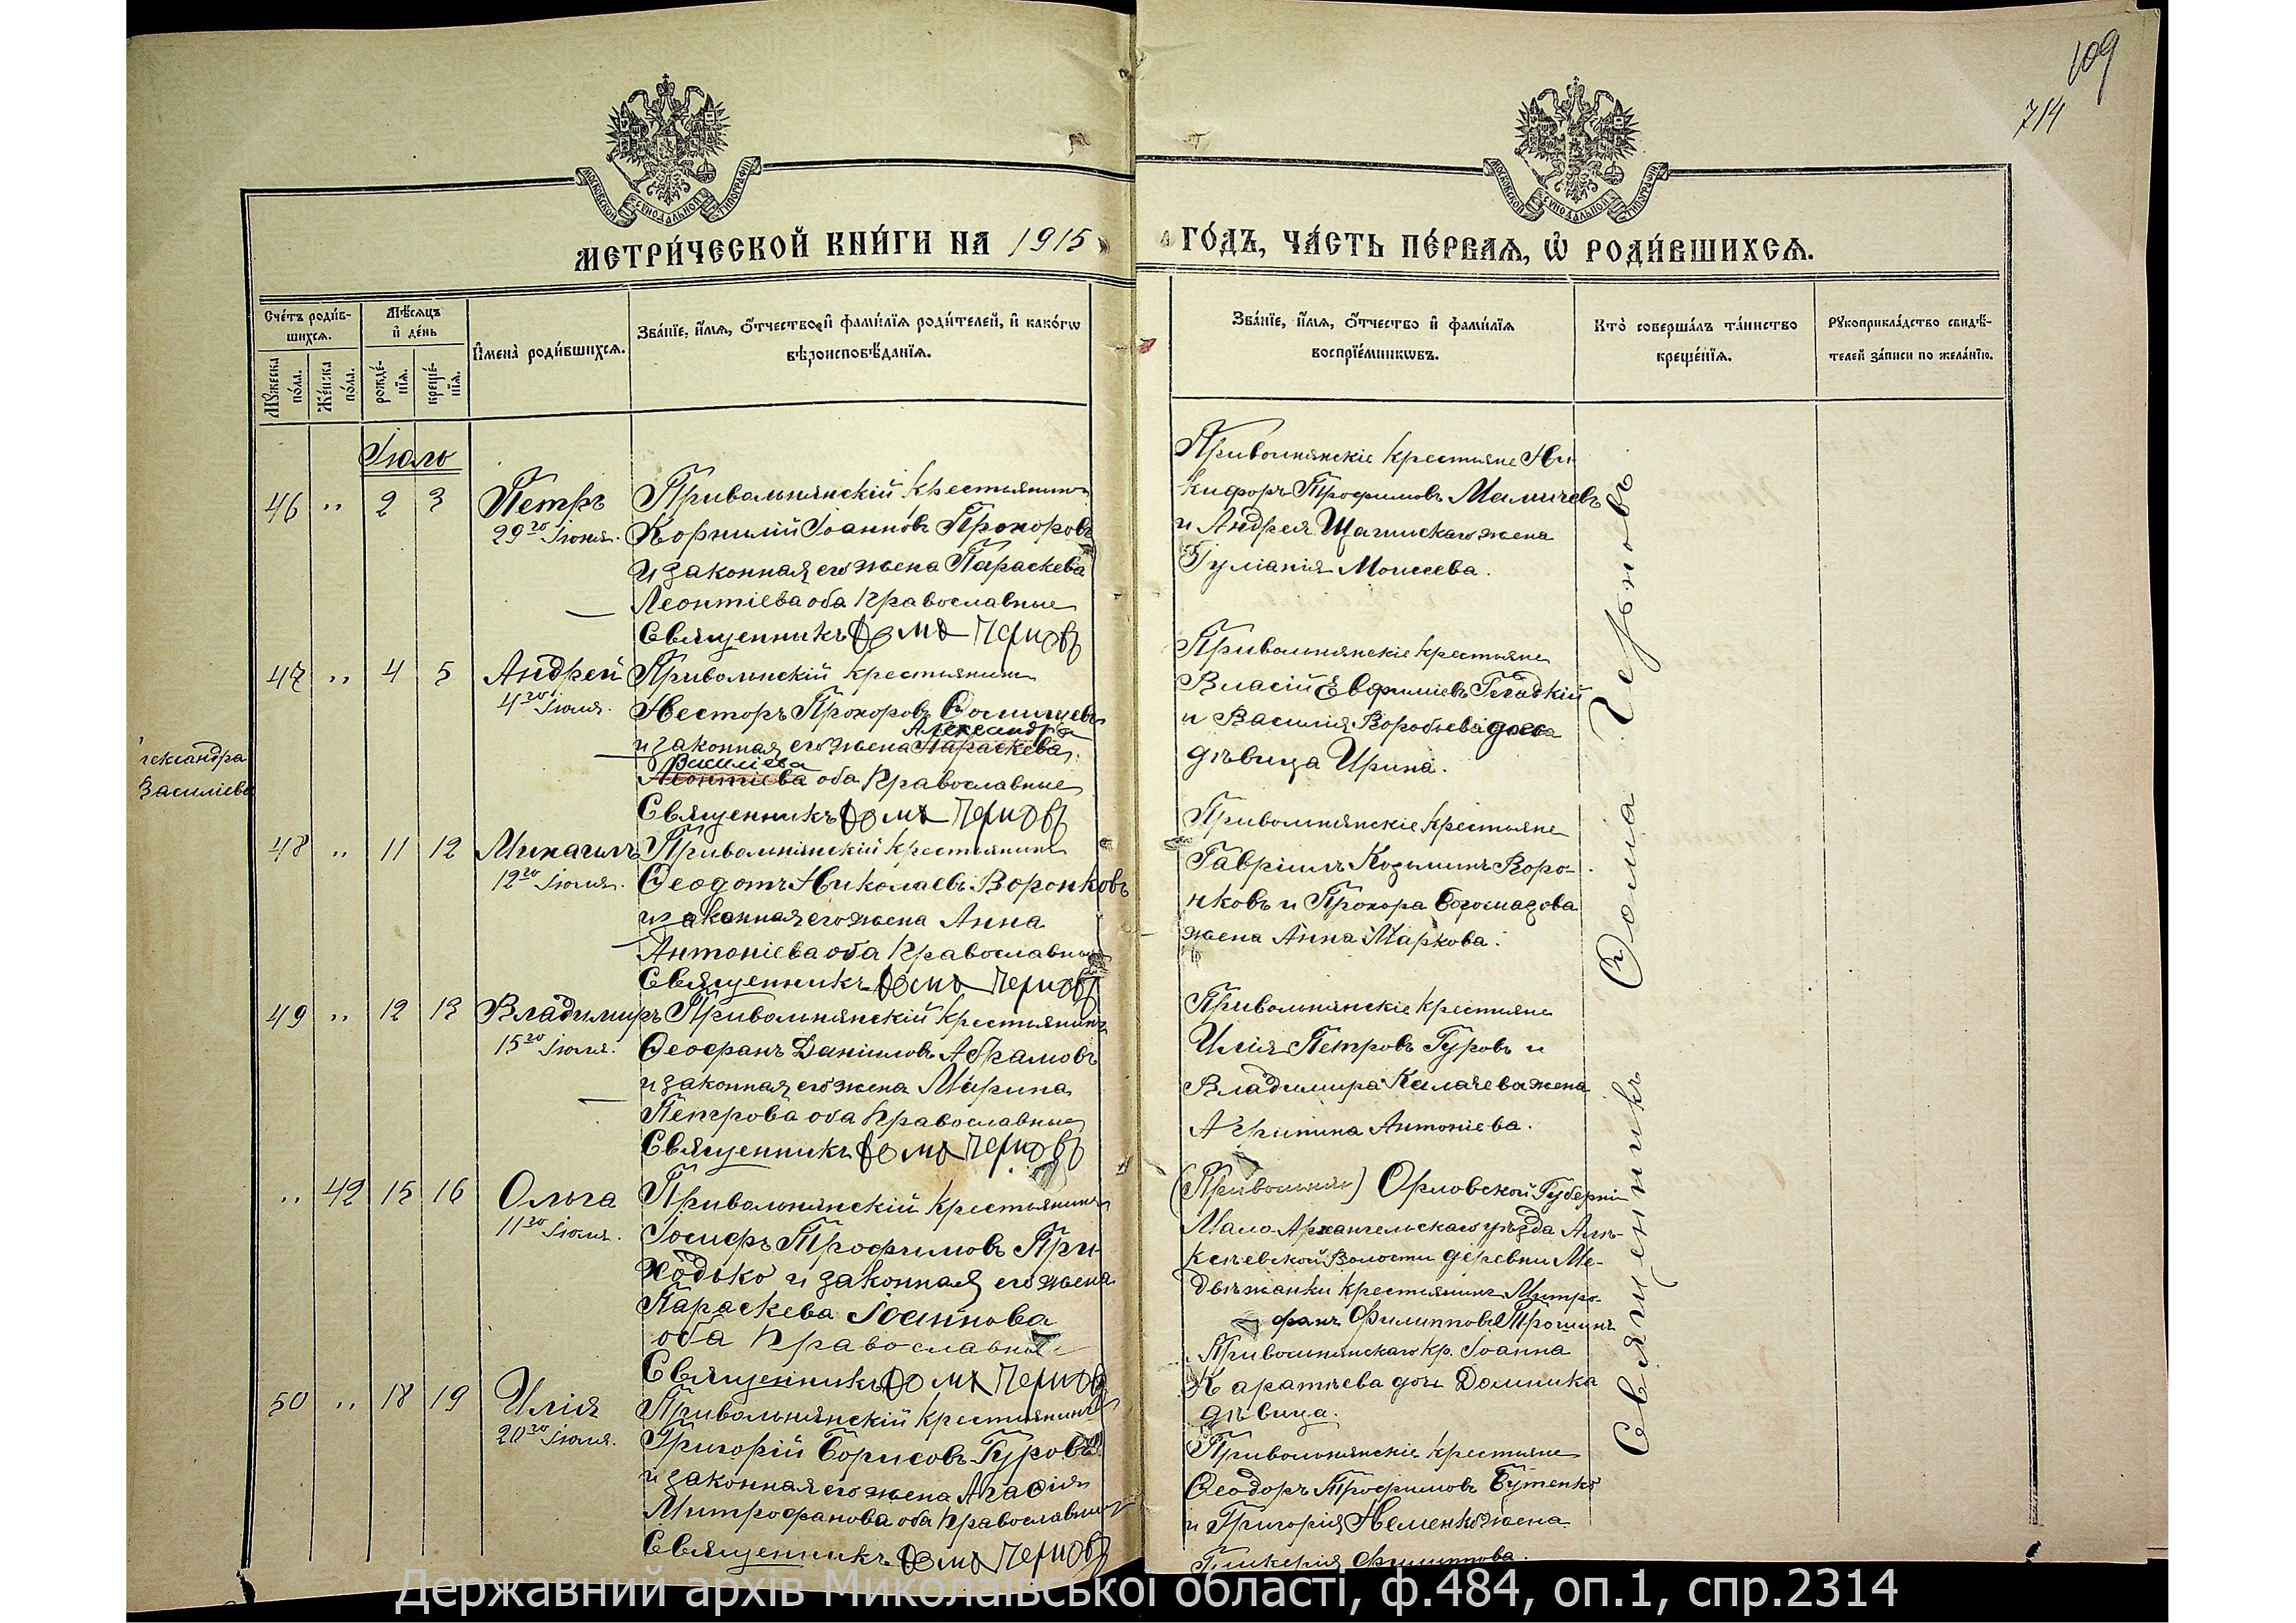 109
714
МОСКОВСКОЙ СѴНОДАЛЬНОЙ ТИПОГРАФІИ
МОСКОВСКОЙ СѴНОДАЛЬНОЙ ТИПОГРАФІИ
МЕТРИ́ЧЕСКОЙ КНИ́ГИ НА 1915
ГО́ДЪ, ЧА́СТЬ ПЕ́РВАѦ, Ѽ РОДИ́ВШИХСѦ.
Сче́тъ роди́в-
шихсѧ.
Мꙋ́жеска по́ла.
Же́нска по́ла.
Мѣ́сѧцъ
и҆ де́нь
рожде́-
нїѧ.
креще́-
нїѧ.
И҆мена̀ роди́вшихсѧ.
Зва́нїе, и҆́мѧ, ѻ҆́тчество и҆ фами́лїѧ роди́телей, и҆ како́гѡ
вѣ́роисповѣ́данїѧ.
Зва́нїе, и҆́мѧ, ѻ҆́тчество и҆ фами́лїѧ
воспрїе́мникѡвъ.
Кто̀ соверша́лъ та́инство
креще́нїѧ.
Рꙋкоприкла́дство свидѣ́-
телей за́писи по жела́нїю.
Іюль
46 " 2 3 Петръ
29го Іюня.
Привольнянскій крестьянинъ
Корнилій Іоанновъ Прохоровъ
и законная его жена Параскева
Леонтіева оба Православные
Священникъ Ѳома Черновъ
Привольнянскіе крестьяне Ни-
кифоръ Трофимовъ Мамичевъ
и Андрея жена
Іуліанія Моисеева.
47 " 4 5 Андрей
4го Іюля.
Привольнскій крестьянинъ
Несторъ Прохоровъ
Александра
и законная его жена Параскева
Василіева
Леонтіева оба Православные
Священникъ Ѳома Черновъ
лександра
Василіева
Привольнянскіе крестьяне
Власій Евфиміевъ Гладкій
и Василія Воробьева дочь
дѣвица Ирина.
48 " 11 12 Михаилъ
12го Іюля.
Привольнянскій крестьянинъ
Ѳеодотъ Николаевъ Воронковъ
и законная его жена Анна
Антоніева оба Православные
Священникъ Ѳома Черновъ
Привольнянскіе крестьяне
Гавріилъ Козьминъ Воро-
нковъ и Прохора Богомазова
жена Анна Маркова.
49 " 12 13 Владимиръ
15го Іюля.
Привольнянскій крестьянинъ
Ѳеофанъ Даніиловъ Абрамовъ
и законная его жена Марина
Петрова оба Православные
Священникъ Ѳома Черновъ
Привольнянскіе крестьяне
Илія Петровъ Гуровъ и
Владимира Калачева жена
Агрипина Антоніева.
" 42 15 16 Ольга
11го Іюля.
Привольнянскій крестьянинъ
Іосифъ Трофимовъ При-
ходько и законная его жена
Параскева Іоаннова
оба Православные
Священникъ Ѳома Черновъ
(Привольнян) Орловской Губерніи
Мало-Архангельскаго уѣзда Алѣ-
ксѣевской Волости деревни Ме-
двѣжанки крестьянинъ Митро-
фанъ Филипповъ Трошинъ
Привольнянскаго кр. Іоанна
Каратѣева дочь Домника
дѣвица.
50 " 18 19 Илія
20го Іюля.
Привольнянскій крестьянинъ
Григорій Борисовъ Гуровъ
и законная его жена Агаѳія
Митрофанова оба Православные
Священникъ Ѳома Черновъ
Привольнянскіе крестьяне
Ѳеодоръ Трофимовъ Бутенко
и Григорія Неменко жена
Гликерія Филиппова.
Священникъ Ѳома Черновъ.
Державний архів Миколаївської області, ф.484, оп.1, спр.2314